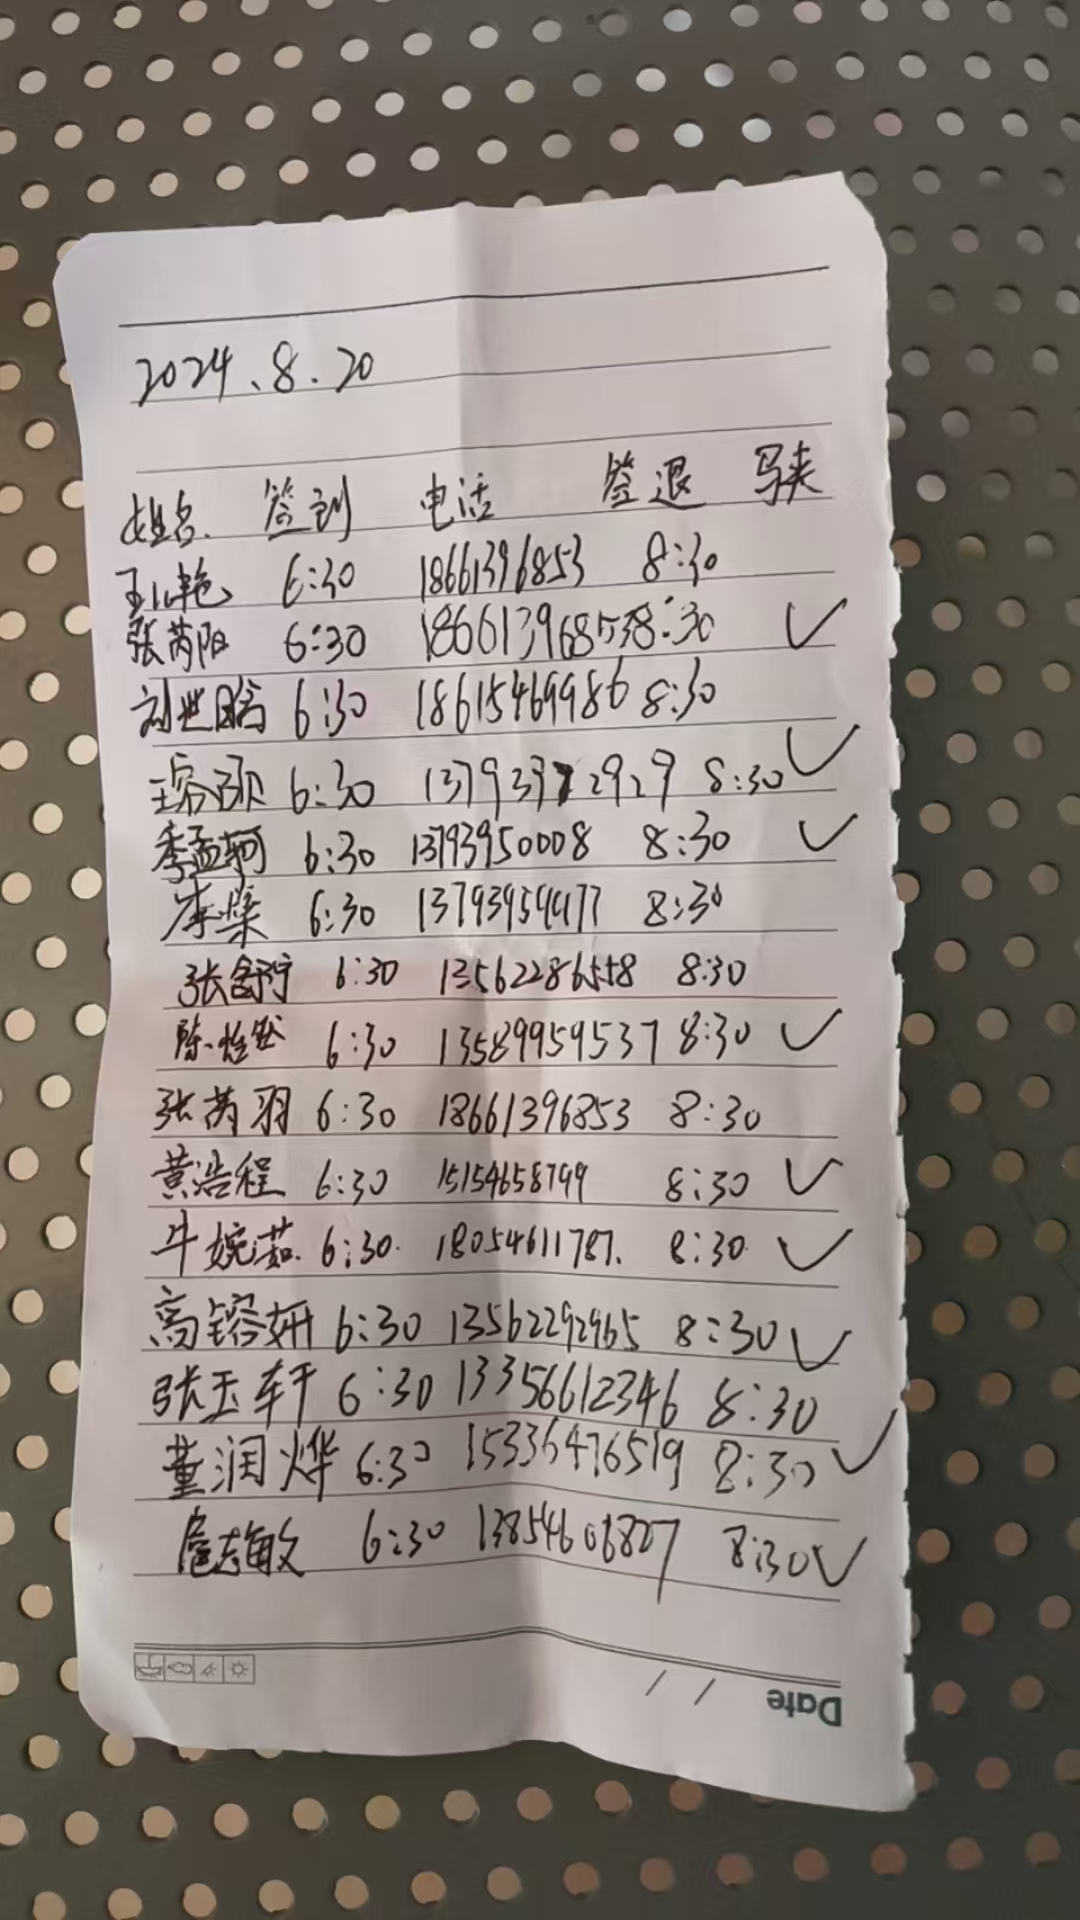 2024.8.20
姓名 签到 电话 签退 马夹
王小艳 6:30 18661396853 8:30
张芮阳 6:30 18661396853 8:30 ✓
刘世晗 6:30 18615469986 8:30
6:30 2929 8:30 ✓
季孟轲 6:30 13793950008 8:30 ✓
李燊 6:30 13793959477 8:30
张舒宁 6:30 13562286558 8:30
陈怡 6:30 13589959537 8:30 ✓
张芮羽 6:30 18661396853 8:30
黄浩程 6:30 15154658799 8:30 ✓
牛婉茹 6:30 18054611787. 8:30 ✓
高镕妍 6:30 13562292965 8:30 ✓
张玉轩 6:30 13356612346 8:30
董润烨 6:30 15336476519 8:30 ✓
敏 6:30 13854606807 8:30 ✓
Date / /